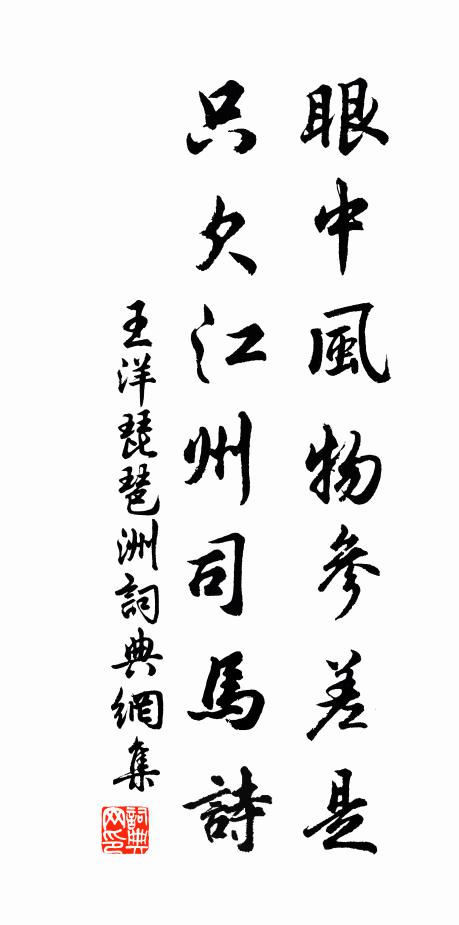 眼中風物參差是
只欠江州司馬詩
王洋琵琶洲詞典網集
詞典
网印